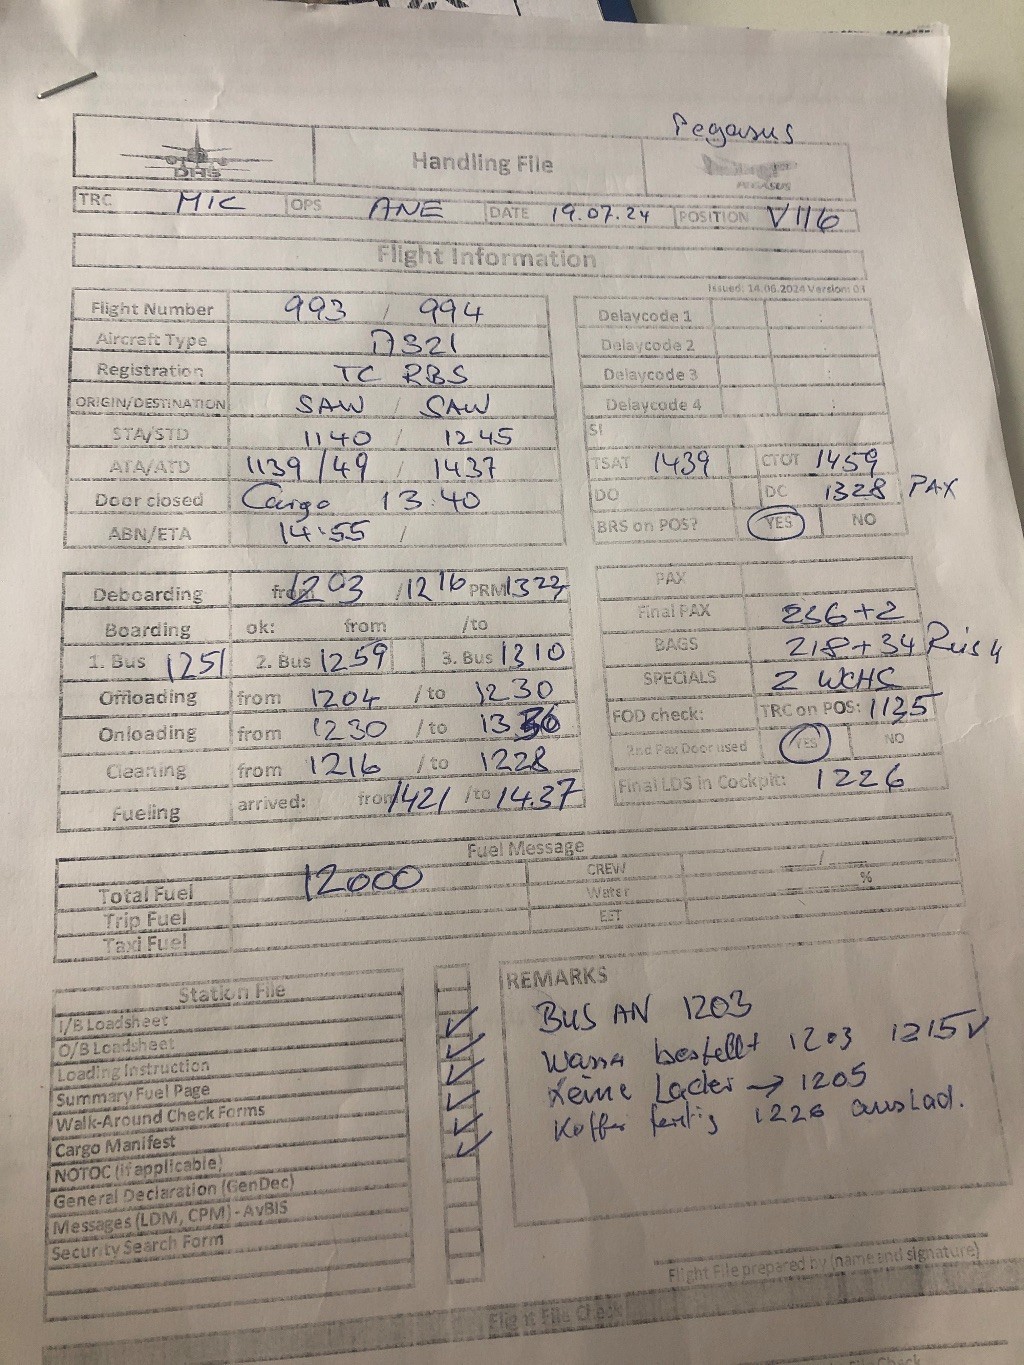 Pegasus
DHS Handling File PEGASUS
TRC MIC OPS ANE DATE 19.07.24 POSITION V116
Flight Information
Issued: 14.06.2024 Version: 03
Flight Number 993 / 994
Aircraft Type A321
Registration TC RBS
ORIGIN/DESTINATION SAW / SAW
STA/STD 1140 / 1245
ATA/ATD 1139/49 / 1437
Door closed Cargo 13:40
ABN/ETA 14:55 /
Delaycode 1 :
Delaycode 2 :
Delaycode 3 :
Delaycode 4 :
SI
TSAT 1439 CTOT 1459
DO DC 1328 PAX
BRS on POS? YES NO
Deboarding from 1203 /1216 PRM 1322
Boarding ok: from /to
1. Bus 1251 2. Bus 1259 3. Bus 1310
Offloading from 1204 / to 1230
Onloading from 1230 / to 1336
Cleaning from 1216 / to 1228
Fueling arrived: from 1421 /to 1437
PAX
Final PAX 236+2
BAGS 218+34
SPECIALS 2 WCHC
FOD check: TRC on POS: 1125
2nd Pax Door used YES NO
Final LDS in Cockpit: 1226
Fuel Message
Total Fuel 12000 CREW /
Trip Fuel Water %
Taxi Fuel EET
Station File
I/B Loadsheet
O/B Loadsheet
Loading Instruction
Summary Fuel Page
Walk-Around Check Forms
Cargo Manifest
NOTOC (if applicable)
General Declaration (GenDec)
Messages (LDM, CPM) - AvBIS
Security Search Form
REMARKS
BUS AN 1203
Wasser bestellt 1203 1215 ✓
Keine Lader → 1205
Koffer fertig 1226 auslad.
Flight File prepared by (name and signature)
Flight File Check